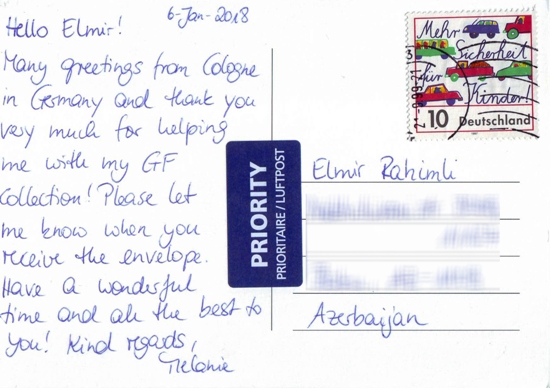 6-Jan-2018
Hello Elmir!
Many greetings from Cologne
in Germany and thank you
very much for helping
me with my GF
Collection! Please let
me know when you
receive the envelope.
Have a wonderful
time and all the best to
you! Kind regards,
Melanie
Mehr
Sicherheit
für
Kinder!
10 Deutschland
PRIORITY
PRIORITAIRE / LUFTPOST
Elmir Rahimli
Azerbaijan